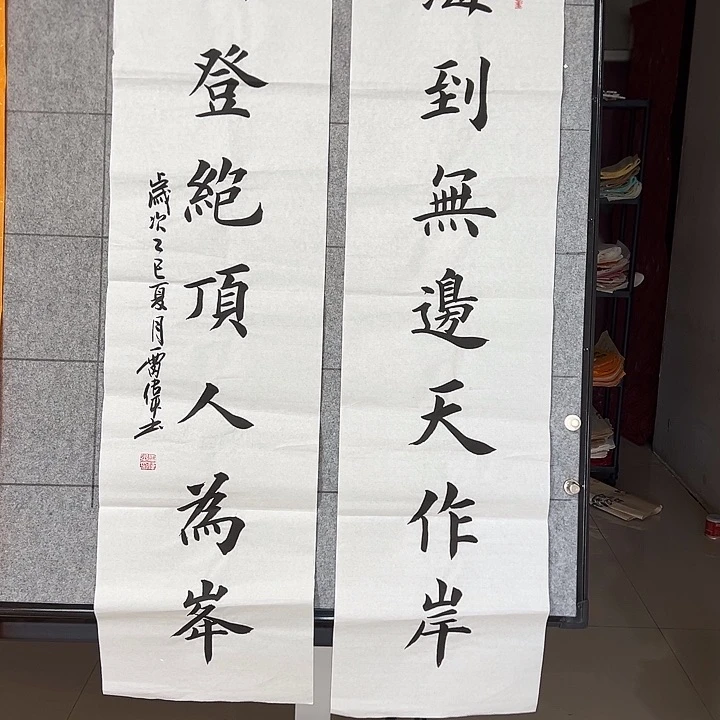 海到無邊天作岸
登絶頂人為峯
歲次乙巳夏月雷偉書